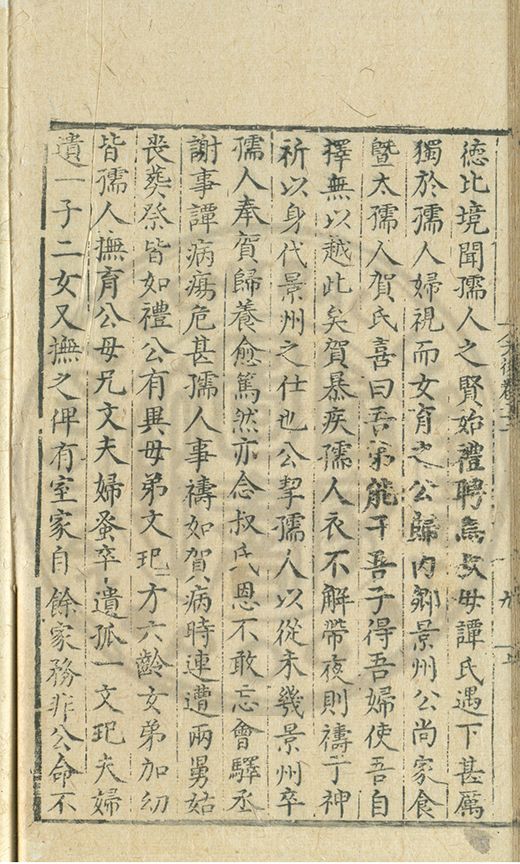 德比境聞孺人之賢始禮聘焉叔母譚氏遇下甚厲
獨於孺人婦視而女育之公歸内鄉景州公尚家食
暨太孺人賀氏喜曰吾弟能干吾子得吾婦使吾自
擇無以越此矣賀暴疾孺人衣不解帶夜則禱于神
祈以身代景州之仕也公挈孺人以從未幾景州卒
孺人奉賀歸養愈篤然亦念叔氏恩不敢忘會驛丞
謝事譚病瘍危甚孺人事禱如賀病時連遭兩舅姑
喪葬祭皆如禮公有異母弟文玘方六齡女弟加幼
皆孺人撫育公母兄文夫婦蚤卒遺孤一文玘夫婦
遺一子二女又撫之俾有室家自餘家務非公命不